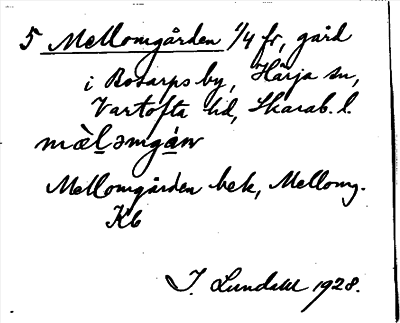 5 Mellomgården 1/4 fr, gård
i Rosarps by, Hårja sn,
Vartofta hd, Skarab. l.
mὲl̲əmgá̲ṇ
Mellomgården bek, Mellomg.
Kb
I. Lundahl 1928.